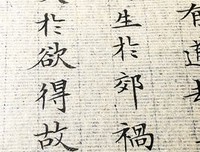 有道
生於郊禍
於欲得故